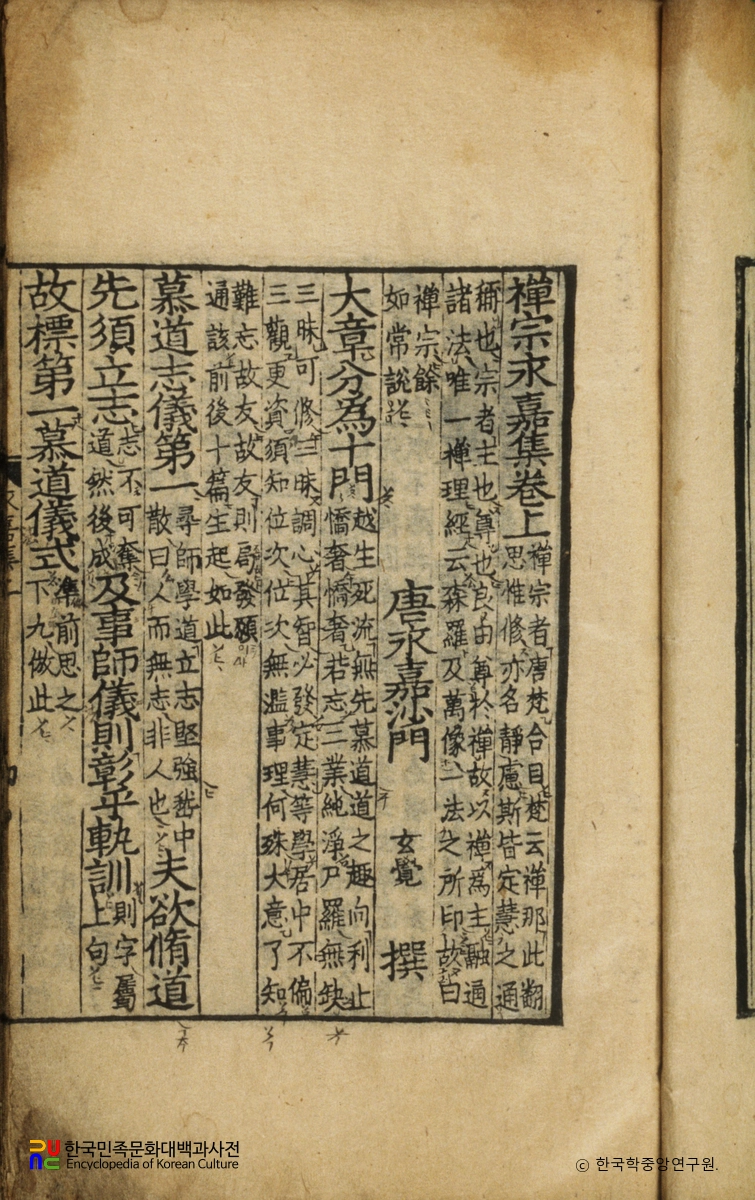 禪宗永嘉集卷上
禪宗者唐梵合目梵云禪那此翻
思惟修亦名靜慮斯皆定慧之通
稱也宗者主也尊也良由尊於禪故以禪爲主融通
諸法唯一禪理經云森羅及萬像一法之所印故曰
禪宗餘
如常說
唐永嘉沙門 玄覺 撰
大章分爲十門
越生死流無先慕道道之趣向利止
憍奢憍奢若忘三業純淨尸羅無缺
三昧可修三昧調心其智必發定慧等學居中不偏
三觀更資須知位次位次無濫事理何殊大意了知
難忘故友故友則局發願
通該前後十篇生起如此
慕道志儀第一
尋師學道立志堅強中
散曰人而無志非人也
夫欲脩道
先須立志
志不可奪
道然後成
及事師儀則彰乎軌訓
則字屬
上句
故標第一慕道儀式
前思之
下九倣此
한국민족문화대백과사전
Encyclopedia of Korean Culture
ⓒ 한국학중앙연구원.